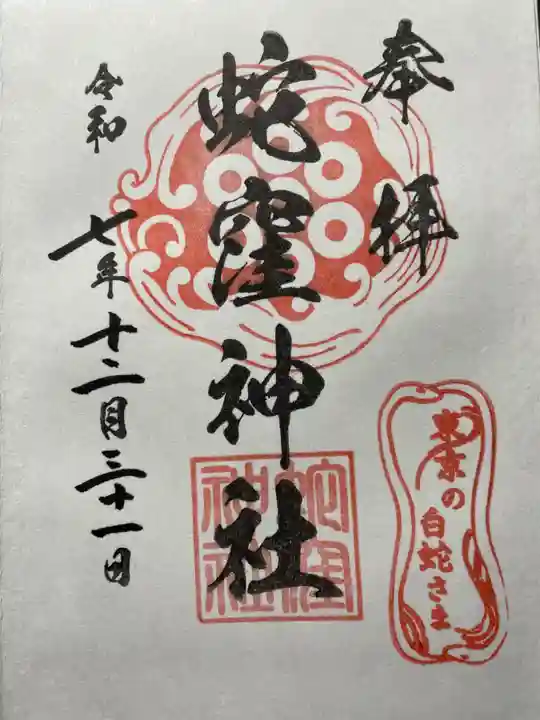 奉拝
蛇窪神社
令和七年十二月三十一日
東京の
白蛇さま
蛇窪
神社